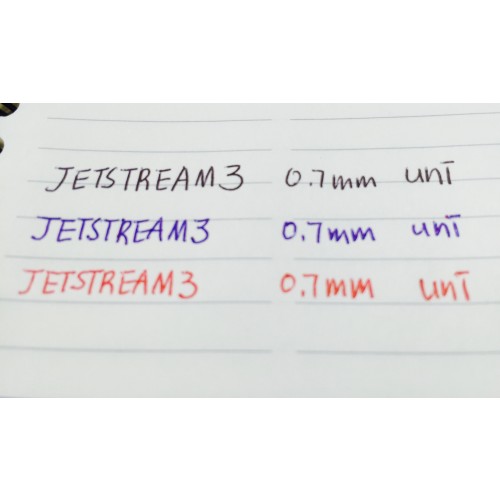 JETSTREAM3 0.7mm unı
JETSTREAM3 0.7mm unı
JETSTREAM3 0.7mm unı